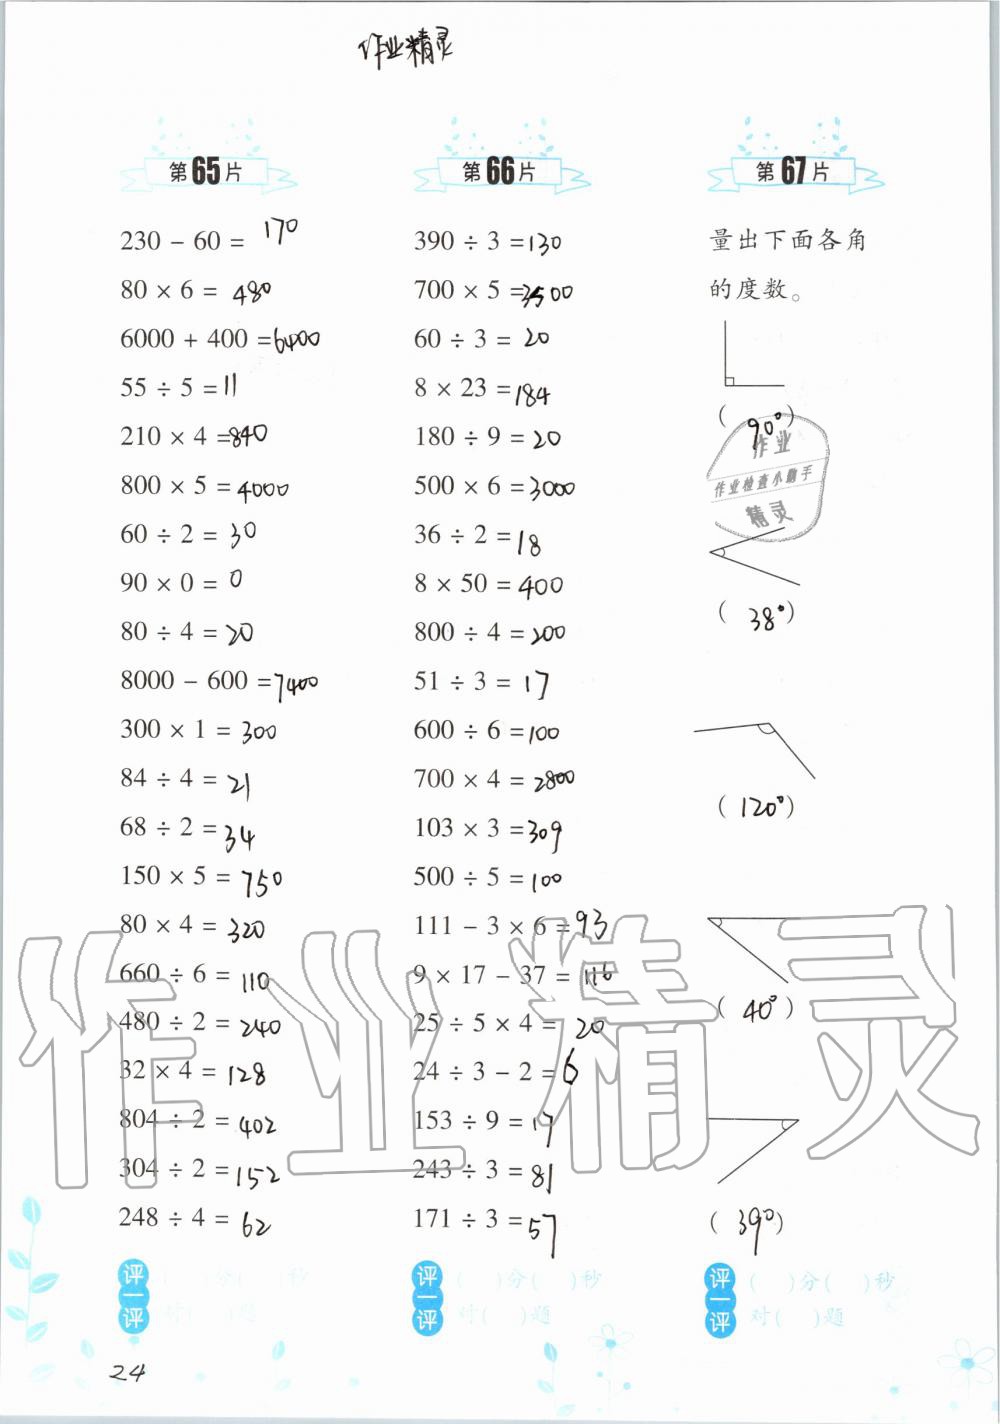 作业精灵
第65片
230 − 60 = 170
80 × 6 = 480
6000 + 400 = 6400
55 ÷ 5 = 11
210 × 4 = 840
800 × 5 = 4000
60 ÷ 2 = 30
90 × 0 = 0
80 ÷ 4 = 20
8000 − 600 = 7400
300 × 1 = 300
84 ÷ 4 = 21
68 ÷ 2 = 34
150 × 5 = 750
80 × 4 = 320
660 ÷ 6 = 110
480 ÷ 2 = 240
32 × 4 = 128
804 ÷ 2 = 402
304 ÷ 2 = 152
248 ÷ 4 = 62
评一评
( )分( )秒
对( )题
第66片
390 ÷ 3 = 130
700 × 5 = 3500
60 ÷ 3 = 20
8 × 23 = 184
180 ÷ 9 = 20
500 × 6 = 3000
36 ÷ 2 = 18
8 × 50 = 400
800 ÷ 4 = 200
51 ÷ 3 = 17
600 ÷ 6 = 100
700 × 4 = 2800
103 × 3 = 309
500 ÷ 5 = 100
111 − 3 × 6 = 93
9 × 17 − 37 = 116
25 ÷ 5 × 4 = 20
24 ÷ 3 − 2 = 6
153 ÷ 9 = 17
243 ÷ 3 = 81
171 ÷ 3 = 57
评一评
( )分( )秒
对( )题
第67片
量出下面各角
的度数。
( 90° )
作业
作业检查小助手
精灵
( 38° )
( 120° )
( 40° )
( 39° )
评一评
( )分( )秒
对( )题
作业精灵
24